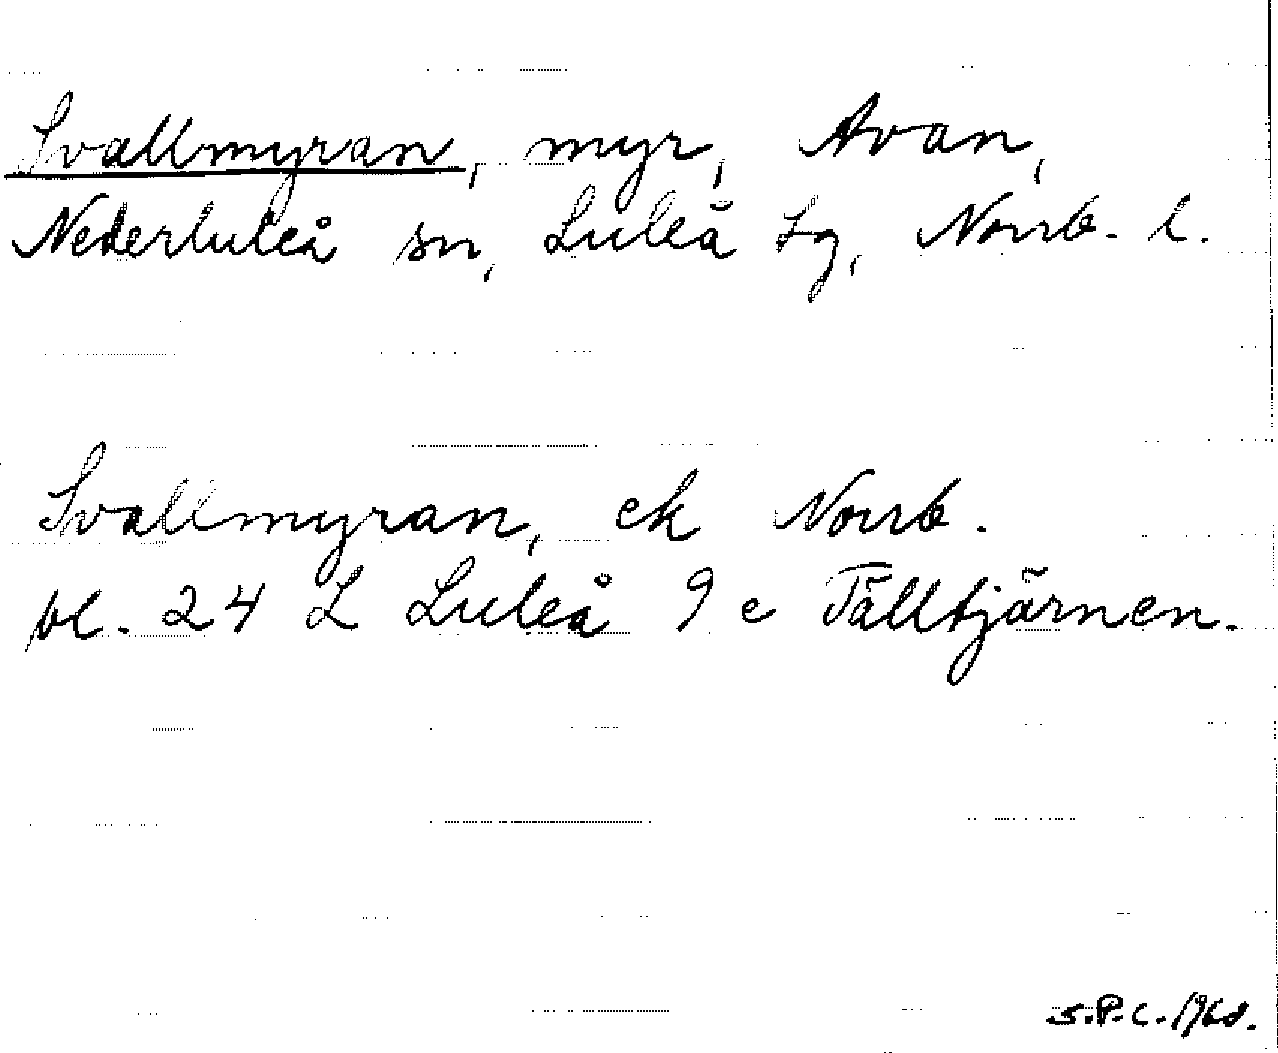 Svallmyran, myr, Avan,
Nederluleå sn, Luleå tg, Norrb. l.
Svallmyran, ek Norrb.
bl. 24 L Luleå 9 e Tälltjärnen.
S.P.C. 1968.